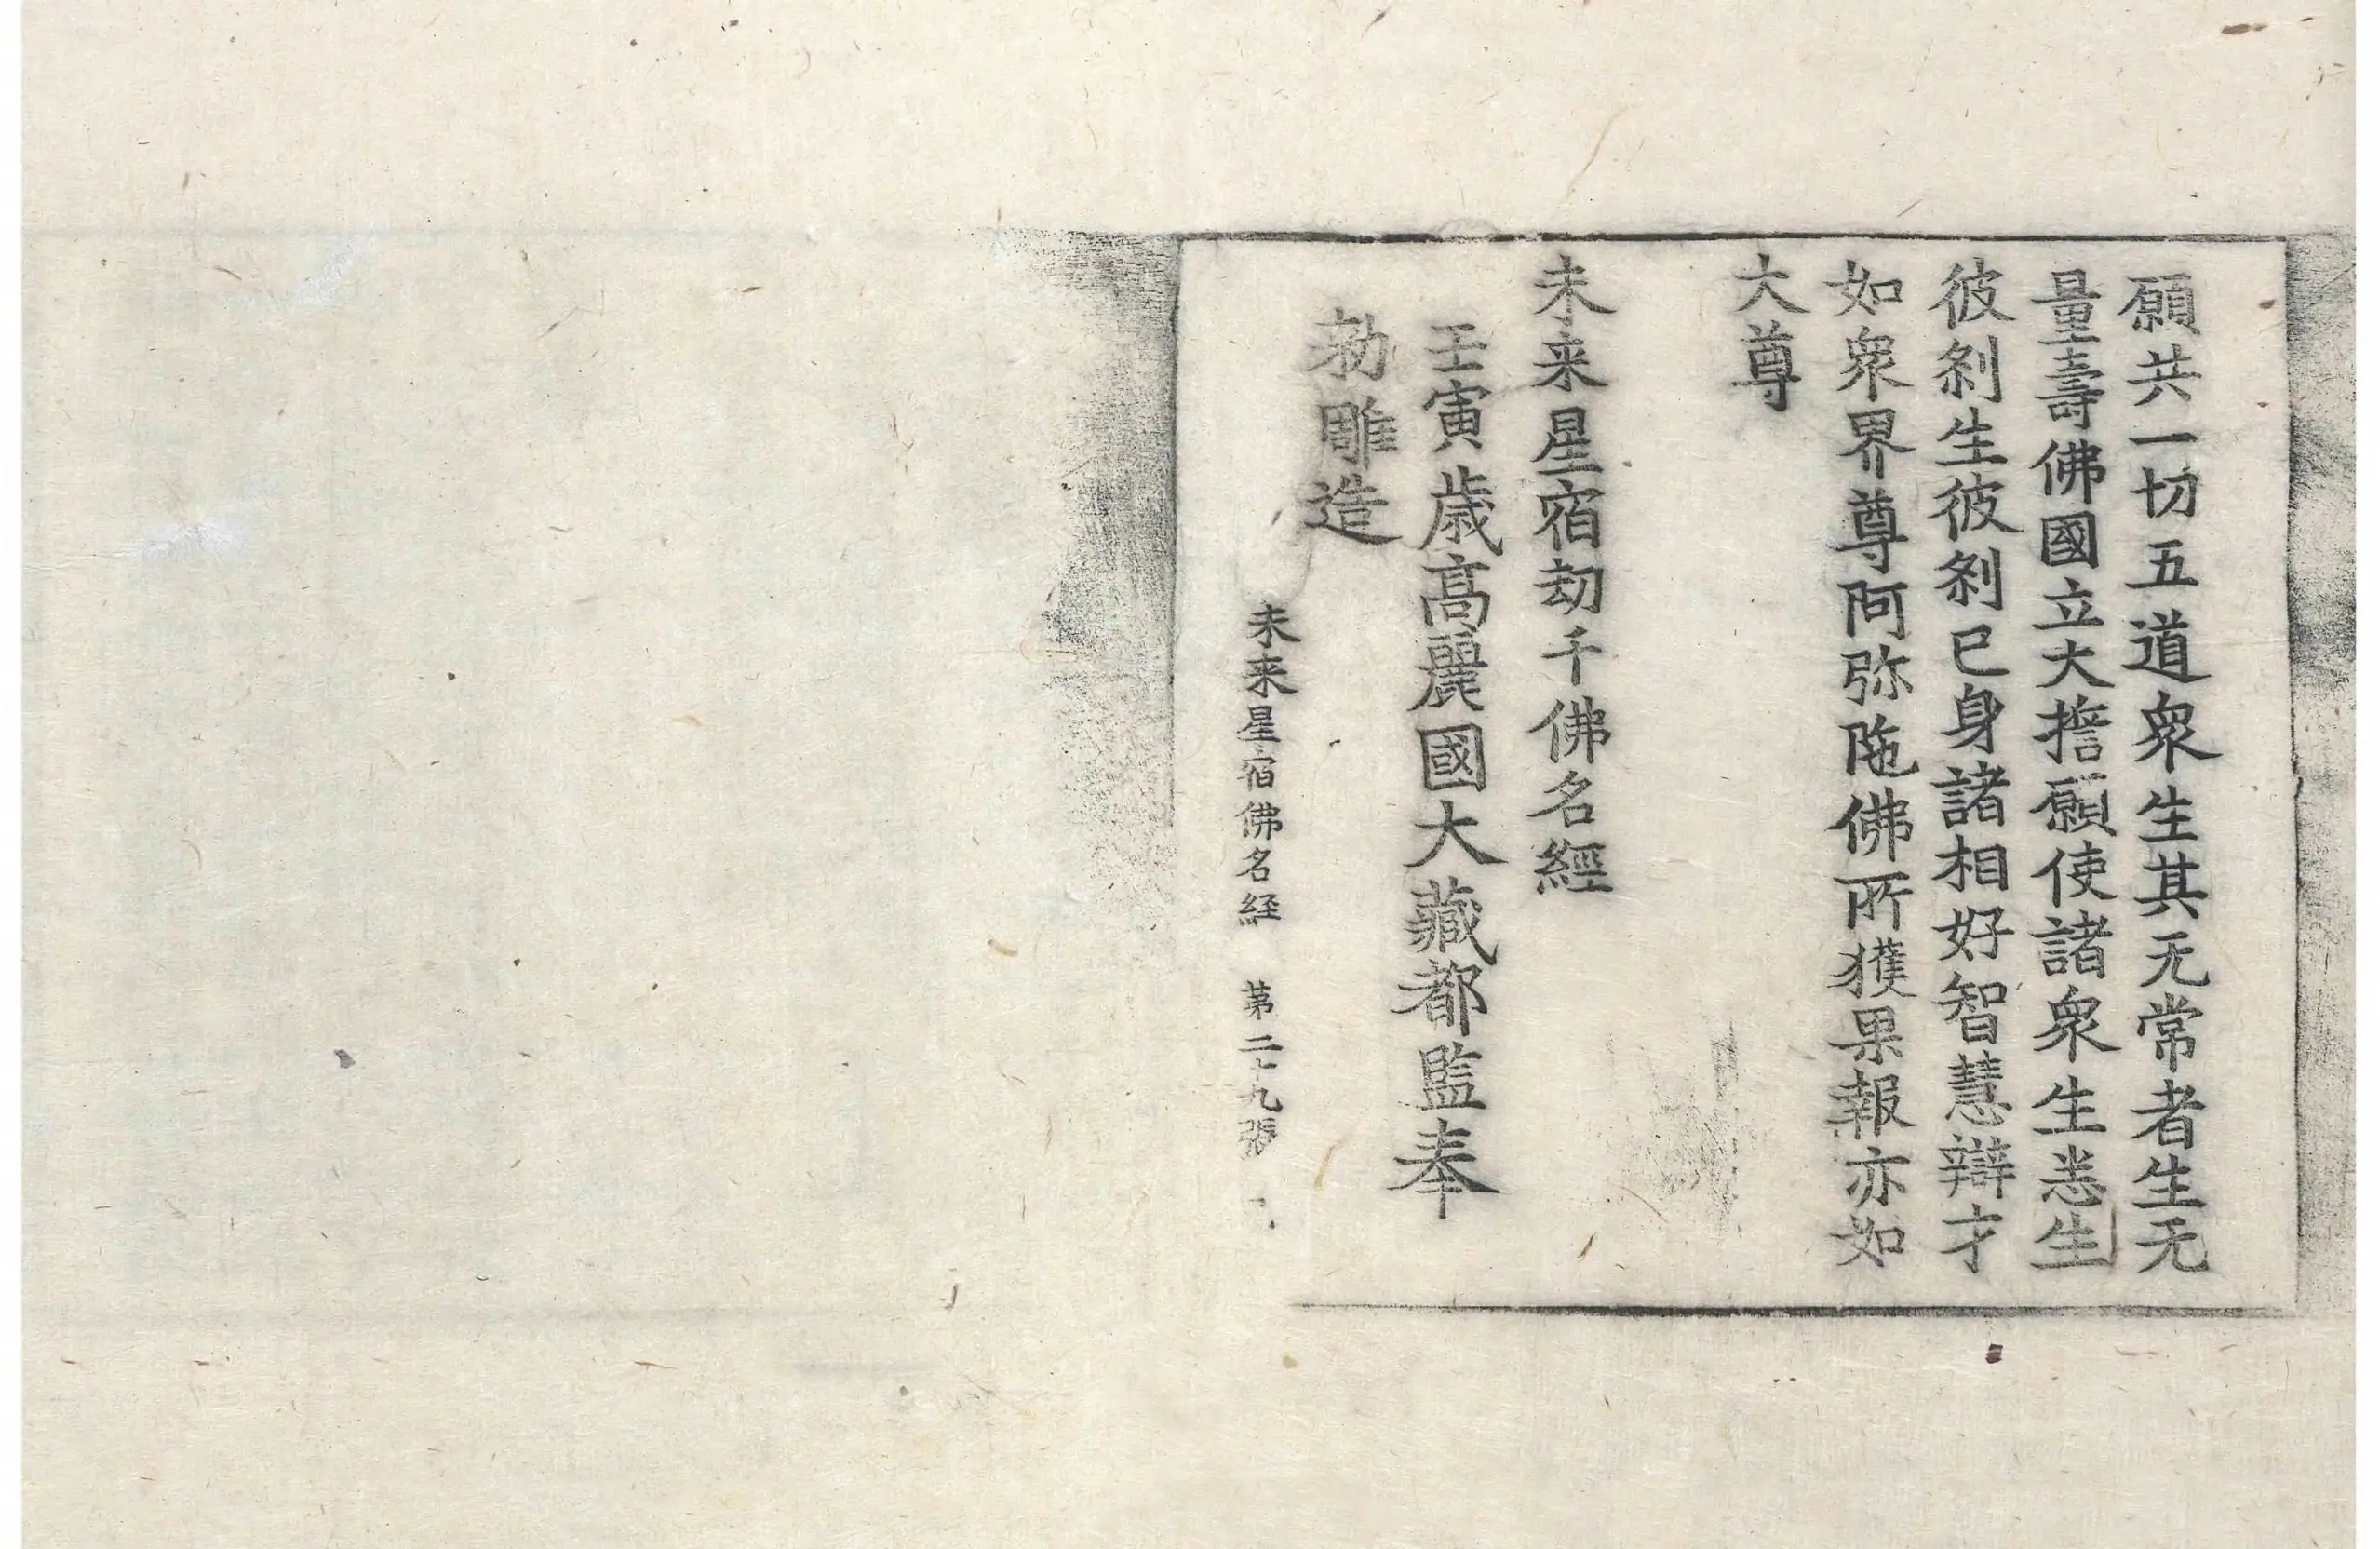 願共一切五道衆生其无常者生无
量壽佛國立大擔願使諸衆生悉生
彼刹生彼刹已身諸相好智慧辯才
如衆界尊阿弥陁佛所獲果報亦如
大尊
未来星宿劫千佛名經
壬寅歳高麗國大藏都監奉
勑雕造
未来星宿佛名経 第二十九張